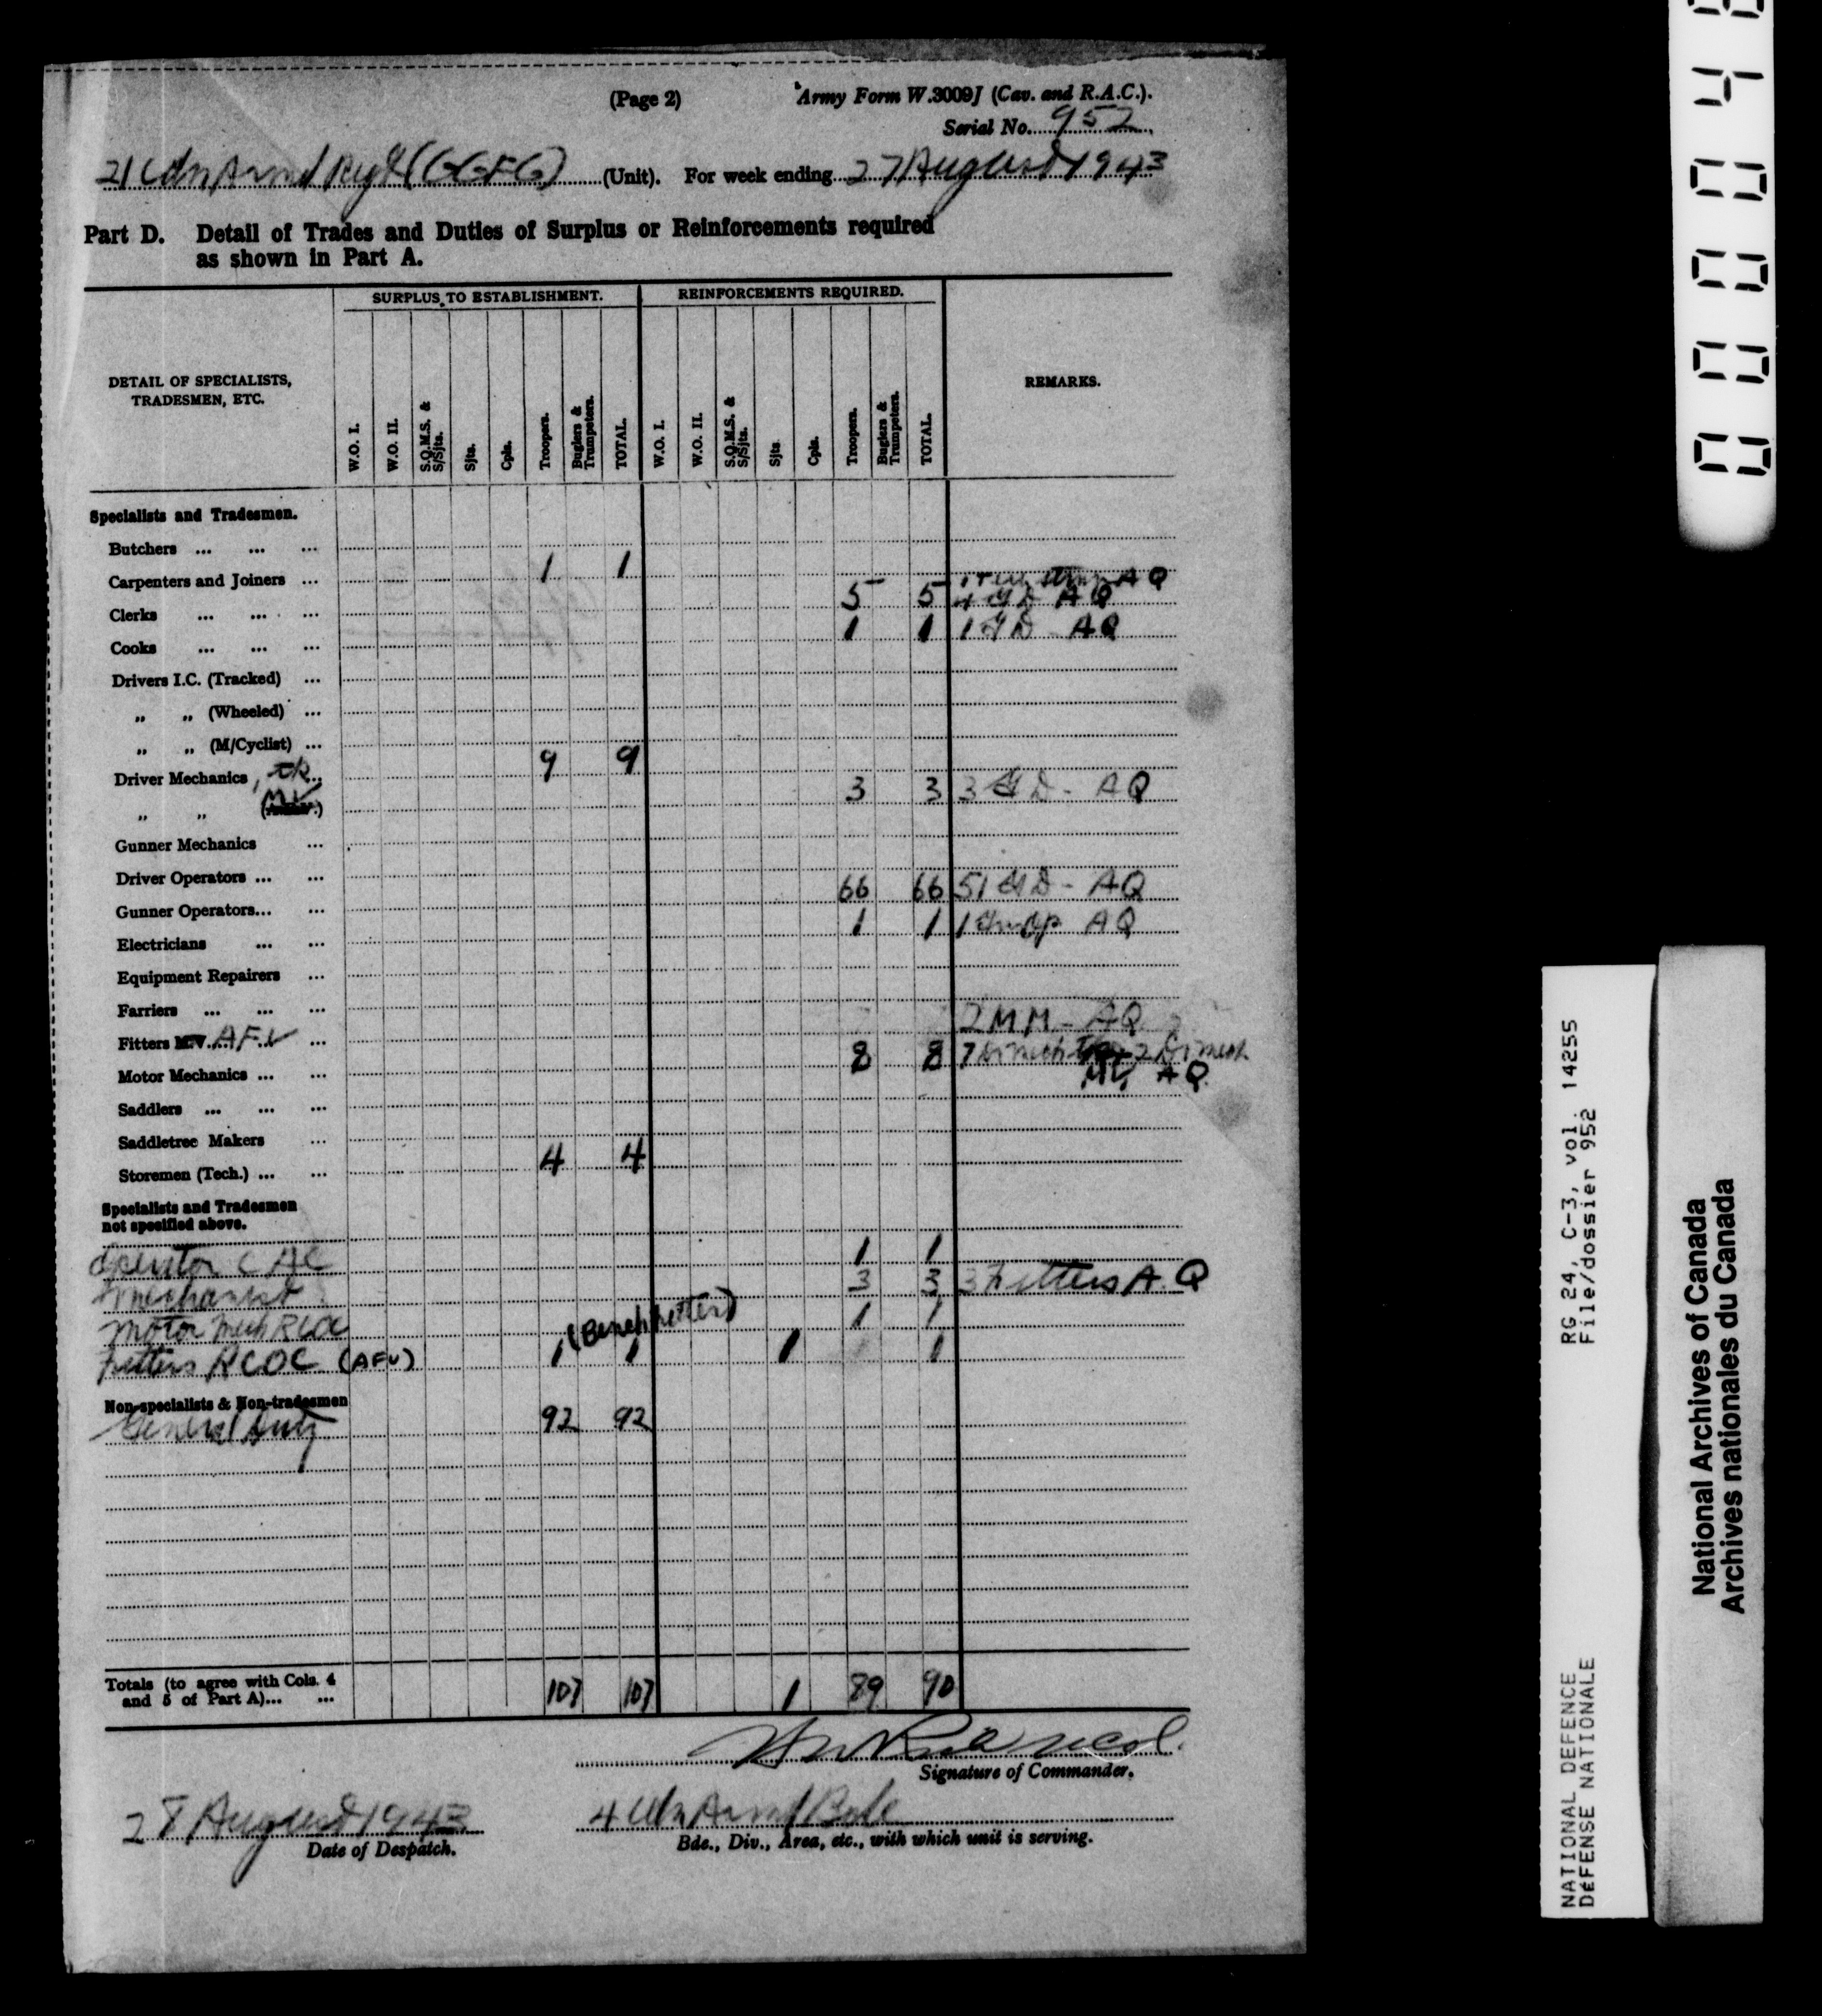 (Page 2) Army Form W.3009J (Cav. and R.A.C.).
Serial No. 952
21 Cdn Armd Regt (GGFG) (Unit). For week ending 27 August 1943
Part D. Detail of Trades and Duties of Surplus or Reinforcements required
as shown in Part A.
DETAIL OF SPECIALISTS, TRADESMEN, ETC.
SURPLUS TO ESTABLISHMENT. REINFORCEMENTS REQUIRED. REMARKS.
W.O. I. W.O. II. S.Q.M.S. & S/Sjts. Sjts. Cpls. Troopers. Buglers & Trumpeters. TOTAL. W.O. I. W.O. II. S.Q.M.S. & S/Sjts. Sjts Cpls. Troopers. Buglers & Trumpeters. TOTAL.
Specialists and Tradesmen.
Butchers ... ... ...
Carpenters and Joiners ... 1 1 AQ
Clerks ... ... ... 5 5 4 GD AQ
Cooks ... ... ... 1 1 1 GD AQ
Drivers I.C. (Tracked) ...
„ „ (Wheeled) ...
„ „ (M/Cyclist) ...
Driver Mechanics, 9 9
„ „ MV 3 3 3 GD - AQ
Gunner Mechanics ...
Driver Operators ... ...
Gunner Operators... ... 66 66 51 GD - AQ
Electricians ... ... 1 1 1 AQ
Equipment Repairers ...
Farriers ... ... ...
Fitters M.V. AFV ... 2 MM - AQ
Motor Mechanics ... ... 8 8 7 Dr mech 2 Dr mech
MV AQ
Saddlers ... ... ...
Saddletree Makers ...
Storemen (Tech.) ... ... 4 4
Specialists and Tradesmen
not specified above.
Operator 1 1
3 3 3 Fitters A.Q
Motor Mech 1 1
(Bench Fitter)
Fitters RCOC (AFV) 1 1 1 1
Non-specialists & Non-tradesmen
General Duty 92 92
Totals (to agree with Cols. 4
and 5 of Part A)... ... 107 107 1 89 90
Signature of Commander.
28 August 1943 4 Cdn Armd Bde
Date of Despatch. Bde., Div., Area, etc., with which unit is serving.
RG 24, C-3, vol. 14255
File/dossier 952
NATIONAL DEFENCE
DÉFENSE NATIONALE
National Archives of Canada
Archives nationales du Canada